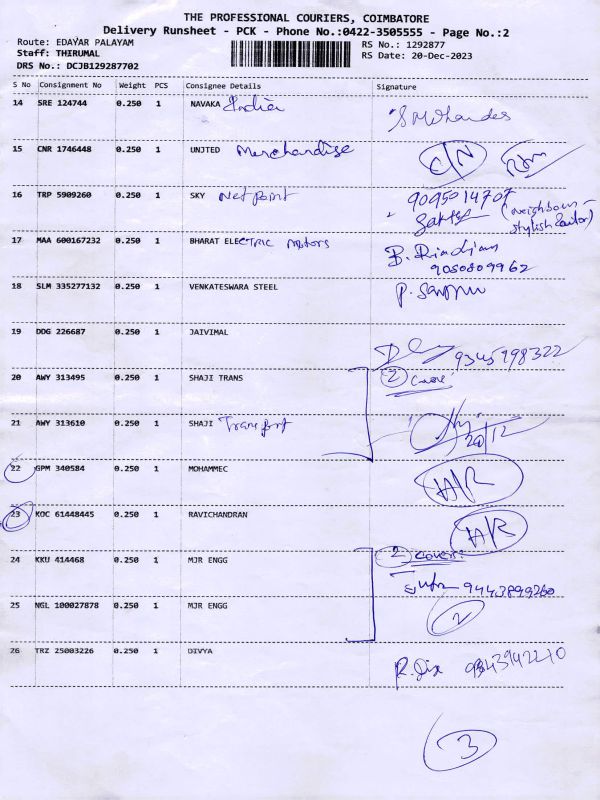 THE PROFESSIONAL COURIERS, COIMBATORE
Delivery Runsheet - PCK - Phone No.:0422-3505555 - Page No.:2
Route: EDAYAR PALAYAM RS No.: 1292877
Staff: THIRUMAL RS Date: 20-Dec-2023
DRS No.: DCJB129287702
S No Consignment No Weight PCS Consignee Details Signature
14 SRE 124744 0.250 1 NAVAKA India
15 CNR 1746448 0.250 1 UNJTED Merchandise C/N
16 TRP 5909260 0.250 1 SKY Net point 9095014707
(Neighbour -
stylish tailor)
17 MAA 600167232 0.250 1 BHARAT ELECTRIC Motors
9050809962
18 SLM 335277132 0.250 1 VENKATESWARA STEEL
19 DDG 226687 0.250 1 JAIVIMAL 9345198322
20 AWY 313495 0.250 1 SHAJI TRANS 2 Cover
21 AWY 313610 0.250 1 SHAJI Transport
20/12
22 GPM 340584 0.250 1 MOHAMMEC A/R
23 KOC 61448445 0.250 1 RAVICHANDRAN A/R
24 KKU 414468 0.250 1 MJR ENGG 2 cover
9443899260
25 NGL 100027878 0.250 1 MJR ENGG 2
26 TRZ 25003226 0.250 1 DIVYA 9843942270
3